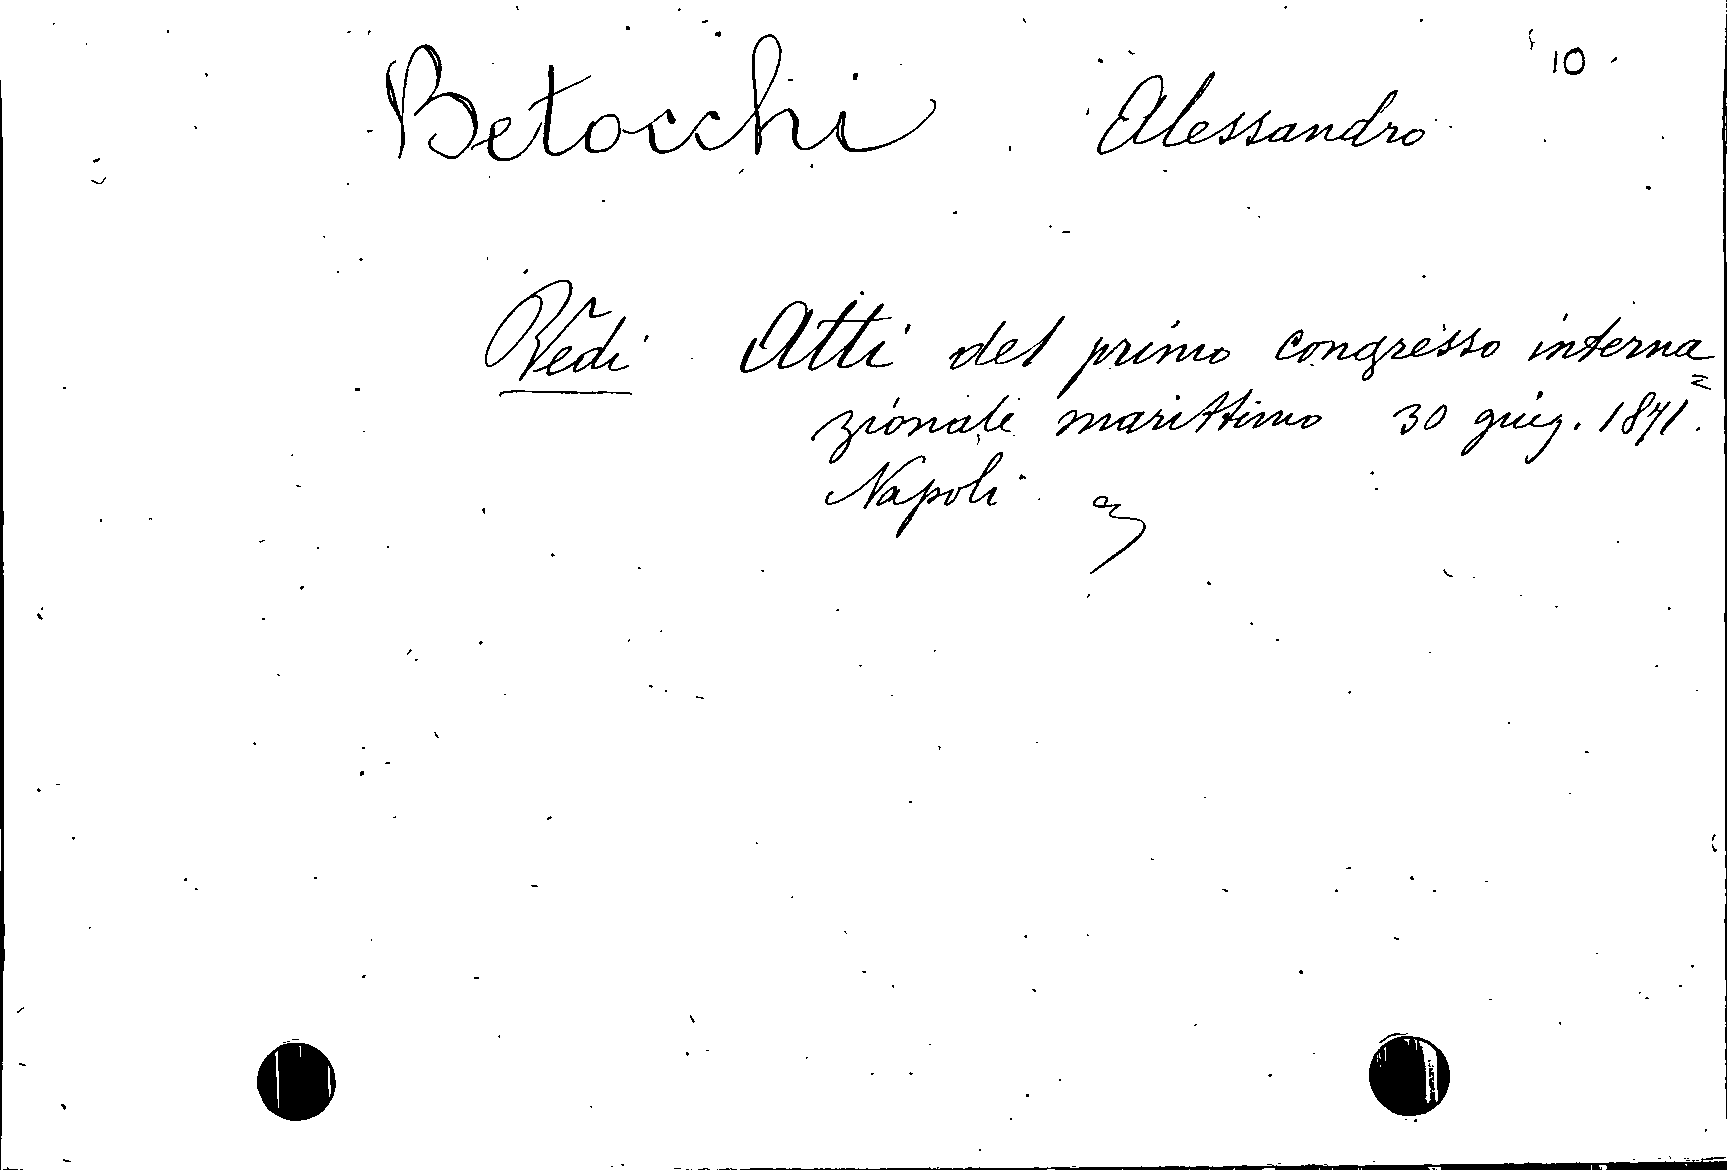 10
Betocchi Alessandro
Vedi Atti del primo congresso interna=
zionale marittimo 30 giug. 1871.
Napoli